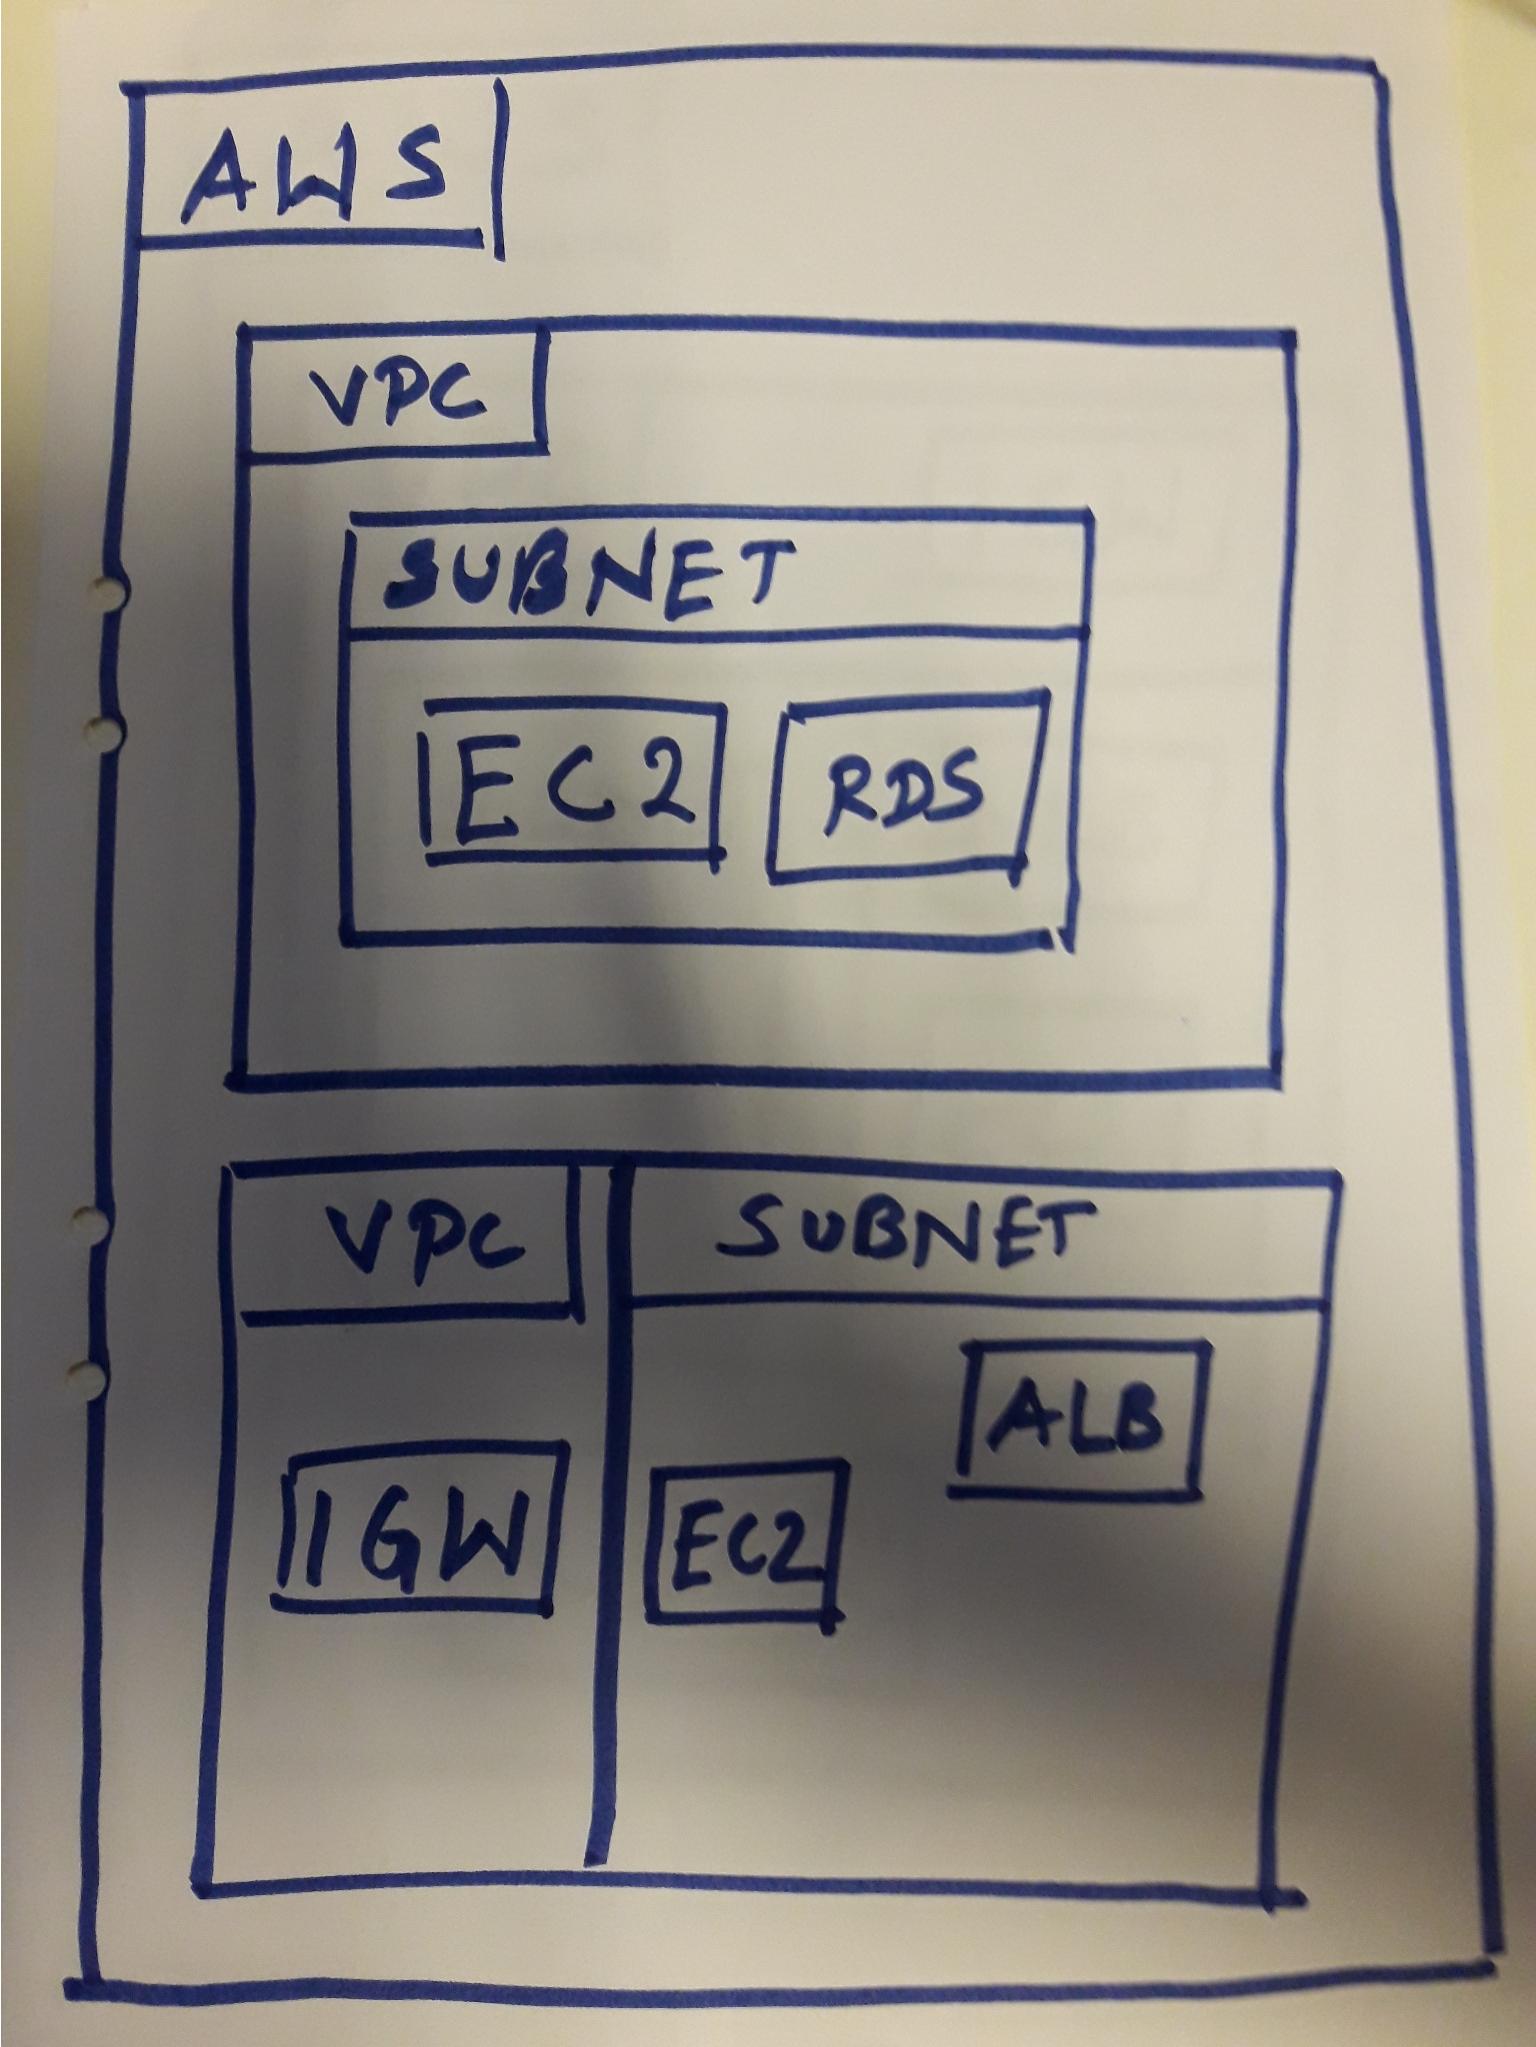 AWS
VPC
SUBNET
EC2
RDS
VPC
SUBNET
ALB
IGW
EC2